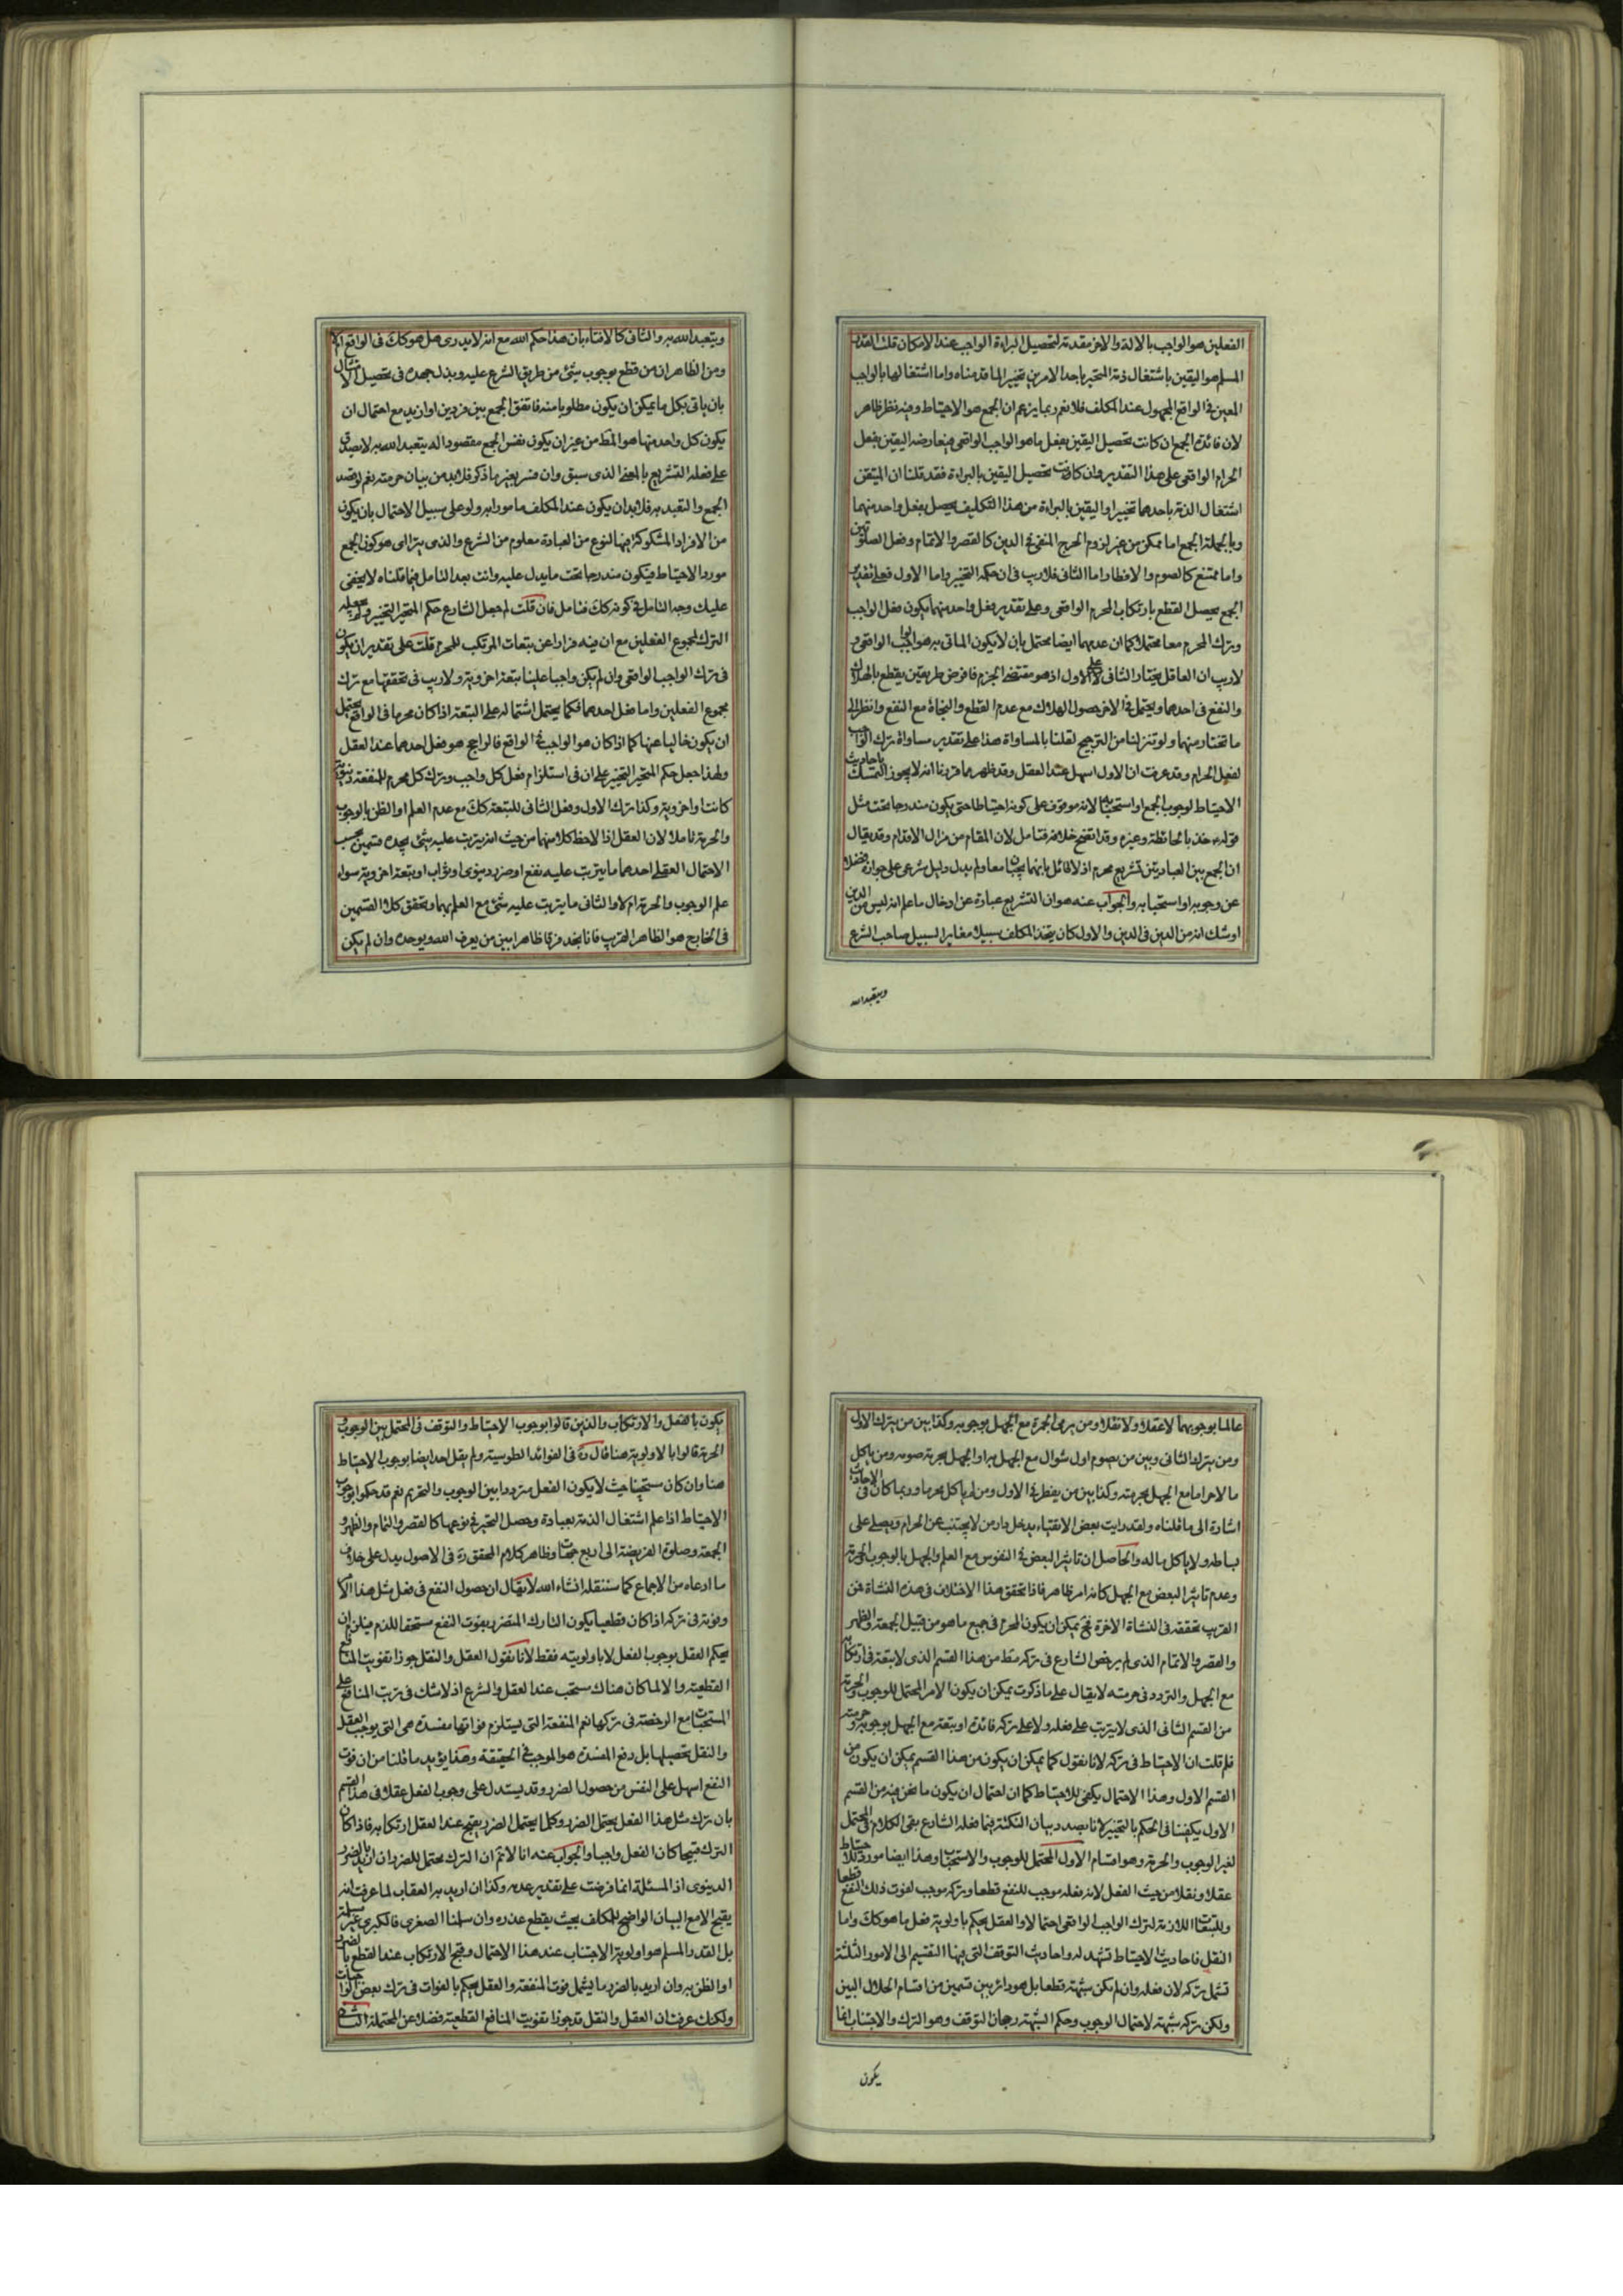 الفعلين هو الواجب بالاصالة والاخر مقدمة لتحصيل البراءة الواجب عند الامكان قلت القدر
المسلم هو اليقين باشتغال ذمة المتحير باحد الامرين تخييرا لما قدمناه واما اشتغالها بالواجب
المعين في الواقع المجهول عند المكلف فلا نعم ربما يزعم ان الجمع هو الاحتياط وفيه نظر ظاهر
لان فائدة الجمع ان كانت تحصيل اليقين بفعل ما هو الواجب الواقعي فيعارضه اليقين بفعل
الحرام الواقعي على هذا التقدير وان كانت تحصيل اليقين بالبراءة فقد قلنا ان المتيقن
اشتغال الذمة باحدهما تخييرا واليقين بالبراءة من هذا التكليف يحصل بفعل واحد منهما
وبالجملة الجمع اما ممكن من غير لزوم الحرج المنفي في الدين كالقصر والاتمام وفعل الصلوتين
واما ممتنع كالصوم والافطار اما الثاني فلا ريب في ان حكمه التخيير واما الاول فعلى تقدير
الجمع يحصل القطع بارتكاب المحرم الواقعي وعلى تقدير فعل واحد منهما يكون فعل الواجب
وترك المحرم معا محتملا كما ان عدمهما ايضا محتمل بان لا يكون الماتي به هو الواجب الواقعي و
لا ريب ان العاقل يختار الثاني على الاول اذ هو مقتضى الحزم فافرض طريقين يقطع بالهلاك
والنفع في احدهما ويحتمل في الاخر حصول الهلاك مع عدم القطع والنجاة مع النفع وانظر الى
ما تختار منهما ولو تنزلنا من الترجيح لقلنا بالمساواة هذا على تقدير مساواة ترك الواجب
لفعل الحرام وقد عرفت ان الاول اسهل عند العقل وقد ظهر مما قررنا انه لا يجوز التمسك باحاديث
الاحتياط لوجوب الجمع او استحبابه لانه موقوف على كونه احتياطا حتى يكون مندرجا تحت مثل
قوله خذ بالحائطة وغيره وقد اتضح خلافه فتامل لان المقام من مزال الاقدام وقد يقال
ان الجمع بين العبادتين تشريع محرم اذ لا قائل بانهما يجبان معا ولم يدل دليل شرعي على جوازه فضلا
عن وجوبه او استحبابه والجواب عنه هو ان التشريع عبارة عن ادخال ما علم انه ليس من الدين
او شك انه من الدين في الدين والاول كان يتخذ المكلف سبيلا مغايرا لسبيل صاحب الشرع
ويتعبد الله
ويتعبد الله به والثاني كالافتاء بان هذا حكم الله مع انه لا يدري هل هو كك في الواقع ام لا
ومن الظاهر ان من قطع بوجوب شئ من طريق الشرع عليه وبذل جهده في تحصيل الامتثال
بان ياتي بكل ما يمكن ان يكون مطلوبا منه فاتفق الجمع بين فردين او ازيد مع احتمال ان
يكون كل واحد منهما هو المط من غير ان يكون نفس الجمع مقصودا له يتعبد الله به لا يصدق
على فعله التشريع بالمعنى الذي سبق وان فسر بغير ما ذكر فلا بد من بيان حرمته نعم لو قصد
الجمع والتعبد به فلا بد ان يكون عند المكلف مامورا به ولو على سبيل الاحتمال بان يكون
من الافراد المشكوكة فيها لنوع من العبادة معلوم من الشرع والذي يترائى هو كون الجمع
مورد الاحتياط فيكون مندرجا تحت ما يدل عليه وانت بعد التامل فيما قلناه لا يخفى
عليك وجه التامل في كونه كك فتامل فان قلت لم جعل الشارع حكم المتحير التخيير ولم يجعله
الترك لمجموع الفعلين مع ان فيه فرارا عن تبعات المرتكب للمحرم قلت على تقدير ان يكون
في ترك الواجب الواقعي وان لم يكن واجبا علينا تبعة اخروية ولا ريب في تحققها مع ترك
مجموع الفعلين واما فعل احدهما فكما يحتمل اشتماله على التبعة اذا كان محرما في الواقع يحتمل
ان يكون خاليا عنها كما اذا كان هو الواجب في الواقع فالراجح هو فعل احدهما عند العقل
ولهذا جعل حكم المتحير التخيير على ان في استلزام فعل كل واجب وترك كل محرم للمنفعة دنيوية
كانت او اخروية وكذا ترك الاول وفعل الثاني للتبعة كك مع عدم العلم او الظن بالوجوب
والحرمة تاملا لان العقل اذا لاحظ كلا منهما من حيث انه يترتب عليه شئ يجده قسمين بحسب
الاحتمال العقلي احدهما ما يترتب عليه نفع او ضرر دنيوي او ثواب او تبعة اخروية سواء
علم الوجوب والحرمة ام لا والثاني ما يترتب عليه شئ مع العلم بهما وتحقق كلا القسمين
في الخارج هو الظاهر القريب فانا نجد فرقا ظاهرا بين من يعرف الله ويوحده وان لم يكن
عالما بوجوبهما لا عقلا ولا نقلا ومن يرمي الجمرة مع الجهل بوجوبه وكذا بين من يترك الاول
ومن يترك الثاني وبين من يصوم اول شوال مع الجهل به او الجهل بحرمة صومه ومن ياكل
مالا حراما مع الجهل بحرمته وكذا بين من يفطر في الاول ومن ياكل محرما وربما كان في الاحاديث
اشارة الى ما قلناه ولقد رايت بعض الاتقياء يدخل دار من لا يجتنب عن الحرام ويصلي على
بساطه ولا ياكل ماله والحاصل ان تاثير البعض في النفوس مع العلم والجهل بالوجوب والحرمة
وعدم تاثير البعض مع الجهل كانه امر ظاهر فاذا تحقق هذا الاختلاف في هذه النشاة فمن
القريب تحققه في النشاة الاخرة فح يمكن ان يكون المحرم في جميع ما هو من قبيل الجمعة والظهر
والقصر والاتمام الذي لم يرخص الشارع في تركه مط من هذا القسم الذي لا تبعة في ارتكابه
مع الجهل والتردد في حرمته لا يقال على ما ذكرت يمكن ان يكون الامر المحتمل للوجوب والحرمة
من القسم الثاني الذي لا يترتب على فعله ولا على تركه فائدة او تبعة مع الجهل بوجوبه وحرمته
فلم قلت ان الاحتياط في تركه لانا نقول كما يمكن ان يكون من هذا القسم يمكن ان يكون من
القسم الاول وهذا الاحتمال يكفي للاحتياط كما ان احتمال ان يكون ما نحن فيه من القسم
الاول يكفينا في الحكم بالتخيير لانا بصدد بيان النكتة فيما فعله الشارع بقي الكلام في المحتمل
لغير الوجوب والحرمة وهو اقسام الاول المحتمل للوجوب والاستحباب وهذا ايضا مورد للاحتياط
عقلا ونقلا من حيث الفعل لان فعله موجب للنفع قطعا وتركه موجب لفوت ذلك النفع قطعا
وللتبعات اللازمة لترك الواجب الواقعي احتمالا والعقل يحكم باولوية فعل ما هو كك واما
النقل فاحاديث الاحتياط تشهد له واحاديث التوقف التي فيها التقسيم الى الامور الثلثة
تشمل تركه لان فعله وان لم يكن شبهة قطعا بل هو دائر بين قسمين من اقسام الحلال البين
ولكن تركه شبهة لاحتمال الوجوب وحكم الشبهة رجحان التوقف وهو الترك والاجتناب انما
يكون
يكون بالفعل والارتكاب والذين قالوا بوجوب الاحتياط والتوقف في المحتمل بين الوجوب و
الحرمة قالوا بالاولوية هنا قال ره في الفوائد الطوسية ولم يقل احد ايضا بوجوب الاحتياط
هنا وان كان مستحبا حيث لا يكون الفعل مترددا بين الوجوب والتحريم نعم قد حكموا بوجوب
الاحتياط اذا علم اشتغال الذمة بعبادة وحصل التحير في نوعها كالقصر والتمام والظهر و
الجمعة وصلوة الفريضة الى اربع جهات وظاهر كلام المحقق ره في الاصول يدل على خلاف
ما ادعاه من الاجماع كما سننقله انشاء الله لا يقال ان حصول النفع في فعل مثل هذا الامر
وفوته في تركه اذا كان قطعيا يكون التارك المتضرر بفوت النفع مستحقا للذم فيلزم ان
يحكم العقل بوجوب الفعل لا باولويته فقط لانا نقول العقل والنقل جوزا تفويت المنافع
القطعية والا لما كان هناك مستحب عند العقل والشرع اذ لا شك في ترتب المنافع على
المستحبات مع الرخصة في تركها نعم المنفعة التي يستلزم فواتها مفسدة هي التي يوجب العقل
والنقل تحصيلها بل دفع المفسدة هو الموجب في الحقيقة وهذا يؤيد ما قلنا من ان فوت
النفع اسهل على النفس من حصول الضرر وقد يستدل على وجوب الفعل عقلا في هذا القسم
بان ترك مثل هذا الفعل يحتمل الضرر وكلما يحتمل الضرر يقبح عند العقل ارتكابه فاذا كان
الترك قبيحا كان الفعل واجبا والجواب عنه انا لا نم ان الترك محتمل للضرر ان اريد بالضرر
الدنيوي اذ المسئلة انما فرضت على تقدير عدمه وكذا ان اريد به العقاب لما عرفت انه
يقبح الا مع البيان الواضح للمكلف بحيث يقطع عذره وان سلمنا الصغرى فالكبرى غير مسلمة
بل القدر المسلم هو اولوية الاجتناب عند هذا الاحتمال وقبح الارتكاب عند القطع بالضرر
او الظن به وان اريد بالضرر ما يشمل فوت المنفعة والعقل يحكم بالفوات في ترك بعض الواجبات
ولكنك عرفت ان العقل والنقل قد جوزا تفويت المنافع القطعية فضلا عن المحتملة